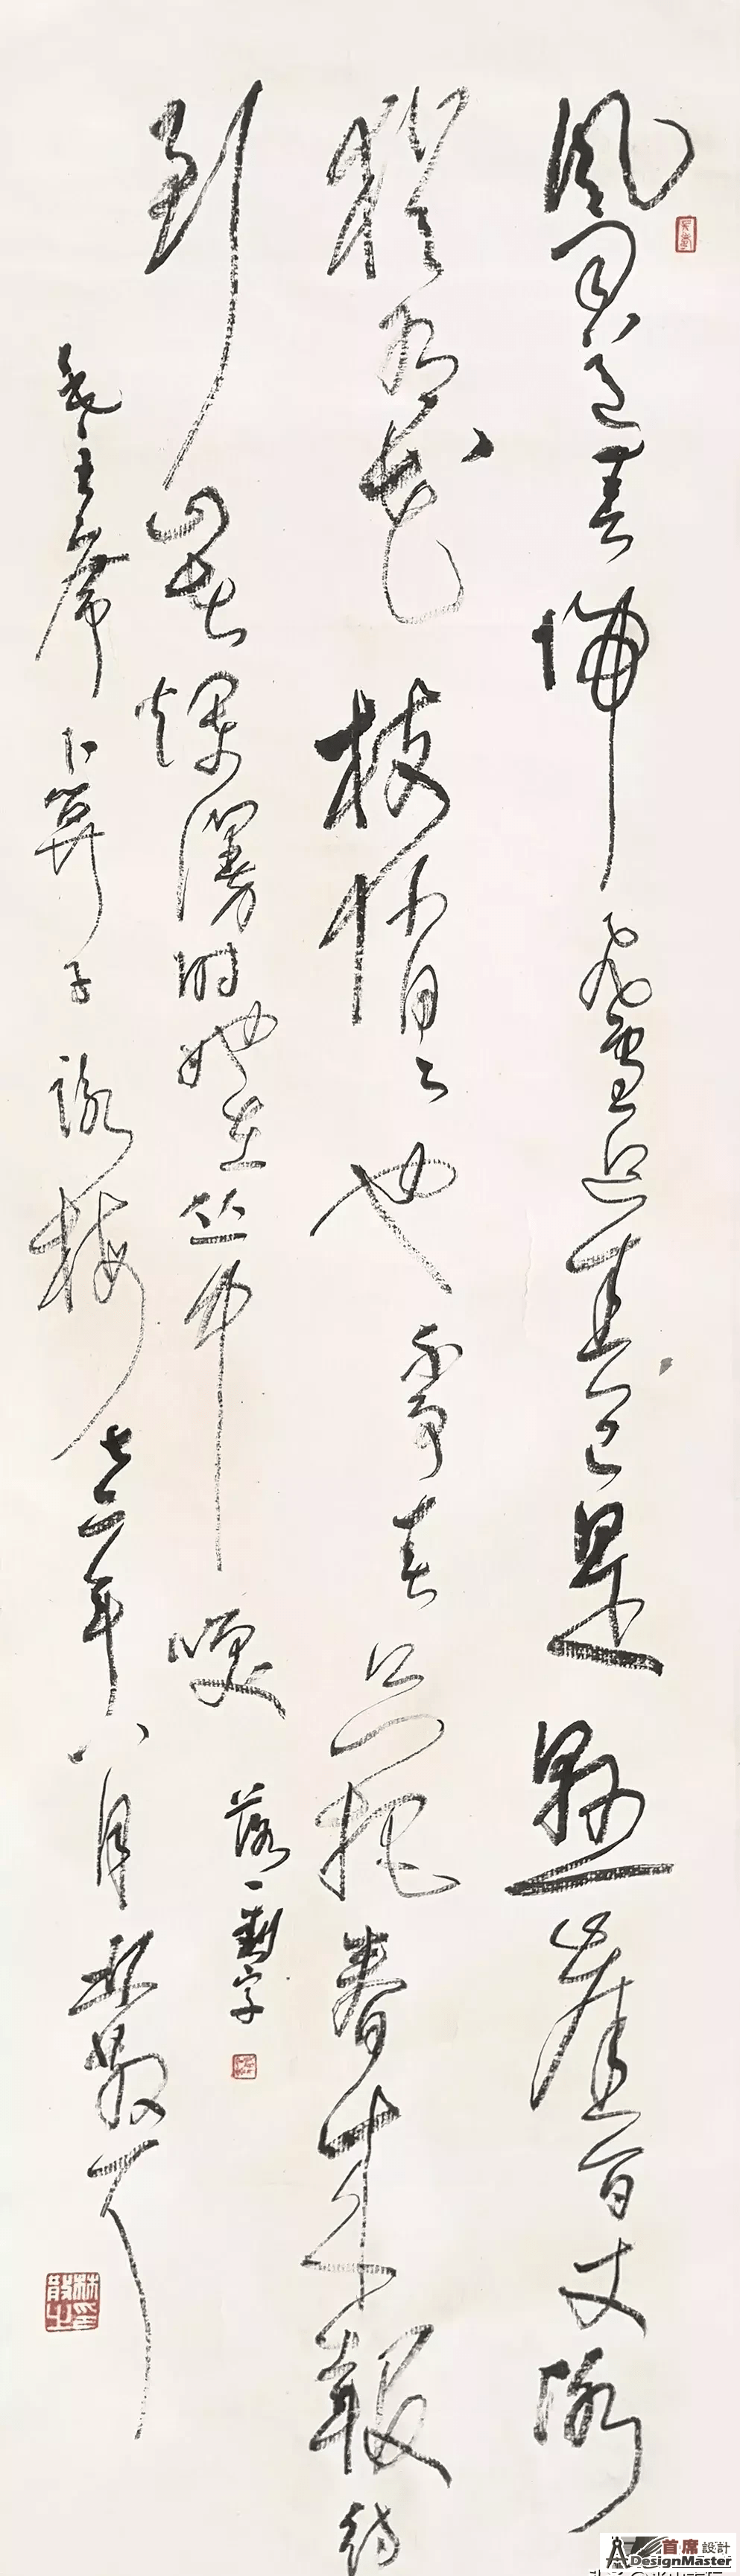 風雨送春歸飛雪迎春已是懸崖百丈冰
猶有花枝俏〻也不爭春只把春來報待
到山花爛漫时她在丛中笑
落一到字
毛主席卜算子詠梅七二年八月林散耳
林散之印
首席設計
ArtDesignMaster